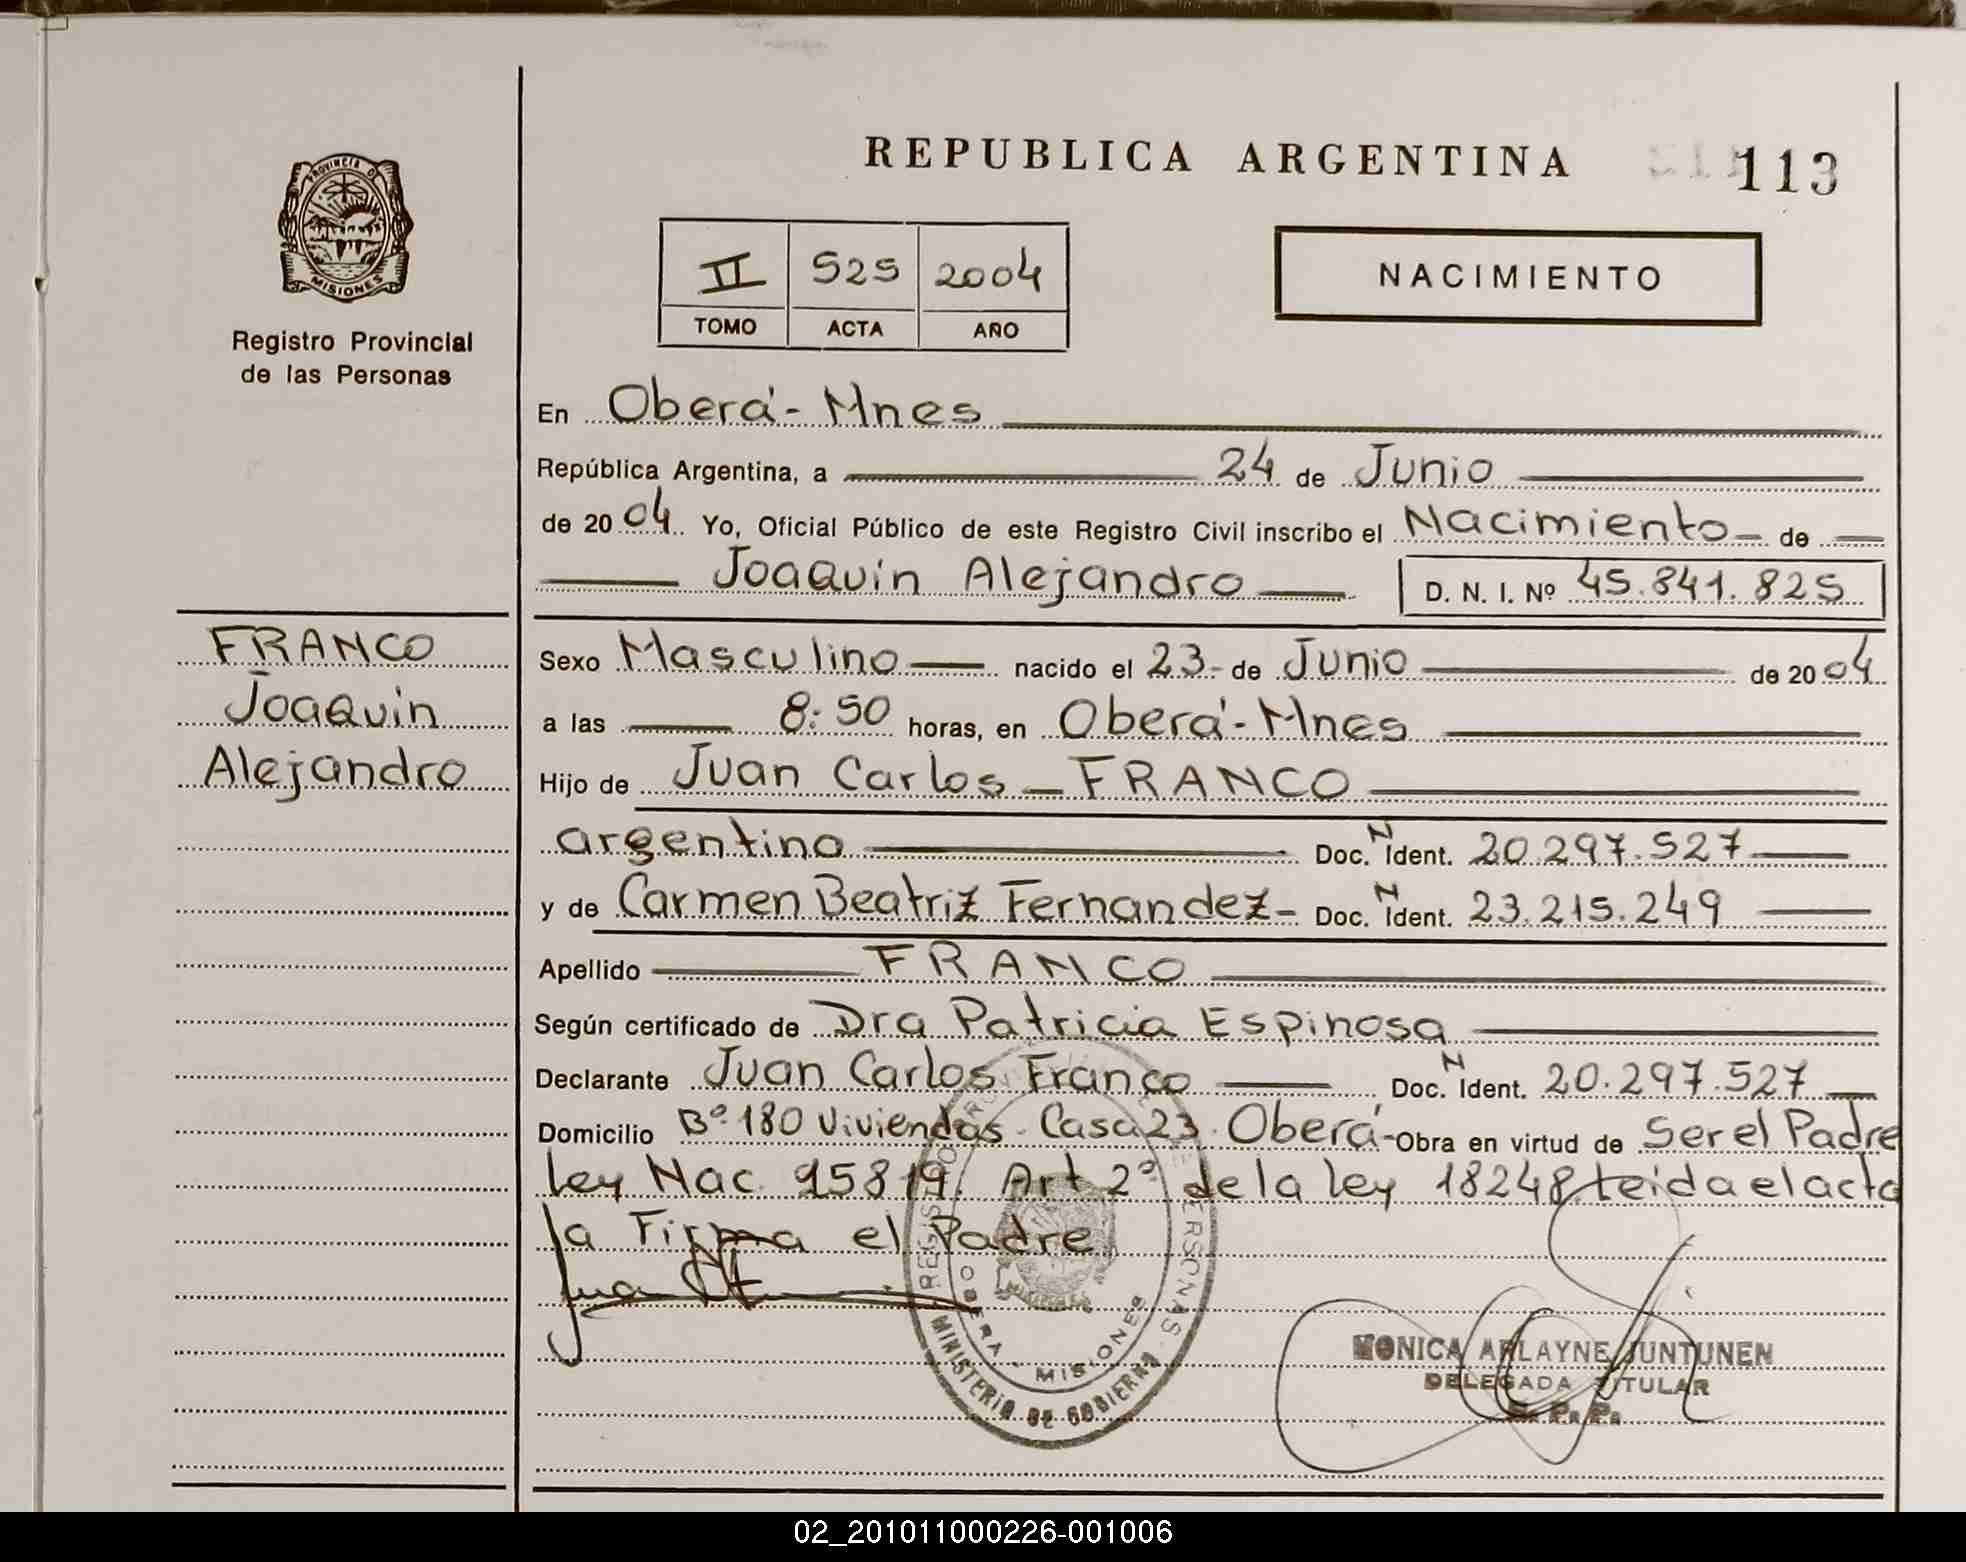 REPUBLICA ARGENTINA 113
PROVINCIA DE
MISIONES
Registro Provincial
de las Personas
II 525 2004
TOMO ACTA AÑO
NACIMIENTO
En Oberá - Mnes
República Argentina, a 24 de Junio
de 2004 Yo, Oficial Público de este Registro Civil inscribo el Nacimiento de
Joaquín Alejandro D. N. I. Nº 45.841.825
FRANCO
Joaquín
Alejandro
Sexo Masculino nacido el 23 - de Junio de 2004
a las 8:50 horas, en Oberá - Mnes
Hijo de Juan Carlos FRANCO
argentino Doc. N Ident. 20.297.527
y de Carmen Beatriz Fernandez - Doc. N Ident. 23.215.249
Apellido FRANCO
Según certificado de Dra Patricia Espinosa
Declarante Juan Carlos Franco Doc. N Ident. 20.297.527
Domicilio Bº 180 Viviendas - Casa 23 - Oberá - Obra en virtud de Ser el Padre
ley Nac. 25819. Art 2º de la ley 18248 leida el acta
la Firma el Padre
REGISTRO PERSONAS
OBERA - MISIONES
MINISTERIO DE GOBIERNO
MONICA ARLAYNE JUNTUNEN
DELEGADA TITULAR
R. P. P.
02_201011000226-001006